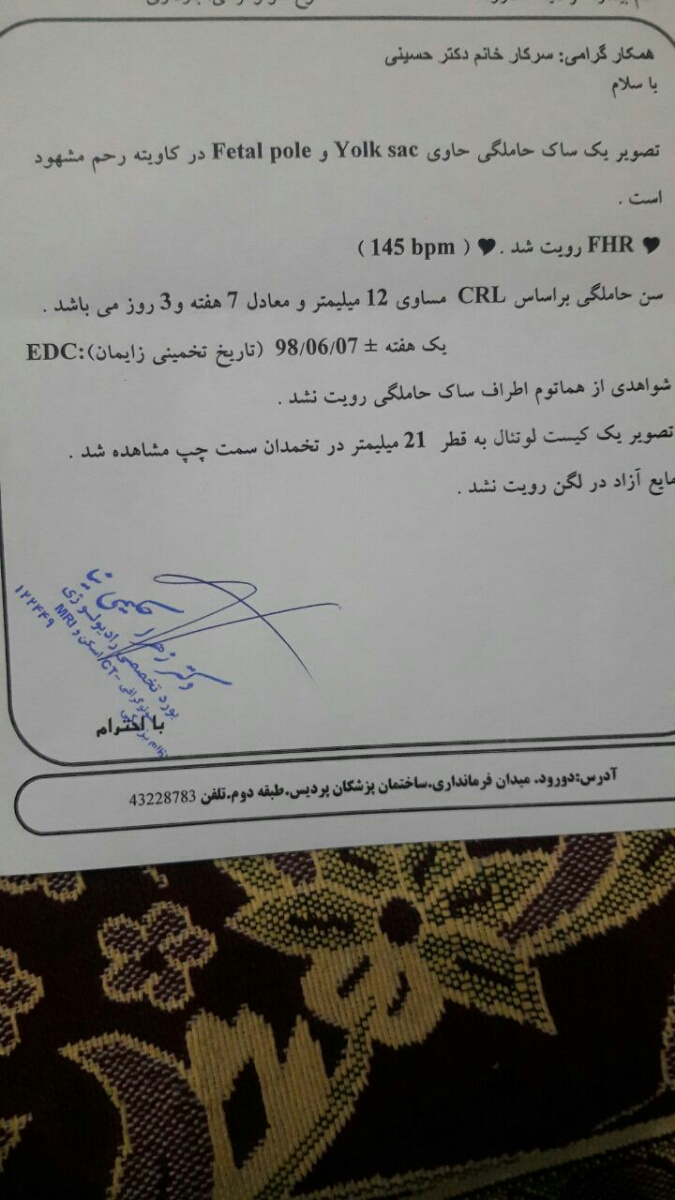 همکار گرامی: سرکار خانم دکتر حسینی
با سلام
تصویر یک ساک حاملگی حاوی Yolk sac و Fetal pole در کاویته رحم مشهود
است .
♥ FHR رویت شد .♥ ( 145 bpm )
سن حاملگی براساس CRL مساوی 12 میلیمتر و معادل 7 هفته و3 روز می باشد .
EDC:(تاریخ تخمینی زایمان) 98/06/07 ± یک هفته
شواهدی از هماتوم اطراف ساک حاملگی رویت نشد .
تصویر یک کیست لوتئال به قطر 21 میلیمتر در تخمدان سمت چپ مشاهده شد .
مایع آزاد در لگن رویت نشد .
دکتر زهرا حکیمی نیا
بورد تخصصی رادیولوژی
سونوگرافی -CT اسکن و MRI
۱۲۲۴۴۹
با احترام
آدرس:دورود. میدان فرمانداری.ساختمان پزشکان پردیس.طبقه دوم.تلفن 43228783